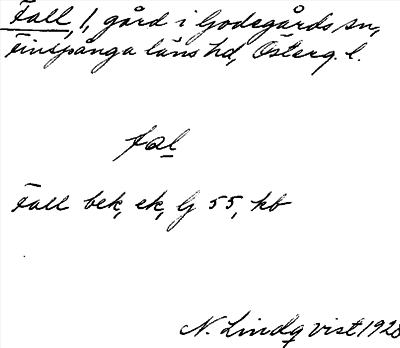 Fall, 1, gård i Godegårds sn,
Finspånga läns hd, Österg. l.
fal
Fall bek, ek, G 55, kb
N. Lindqvist 1928